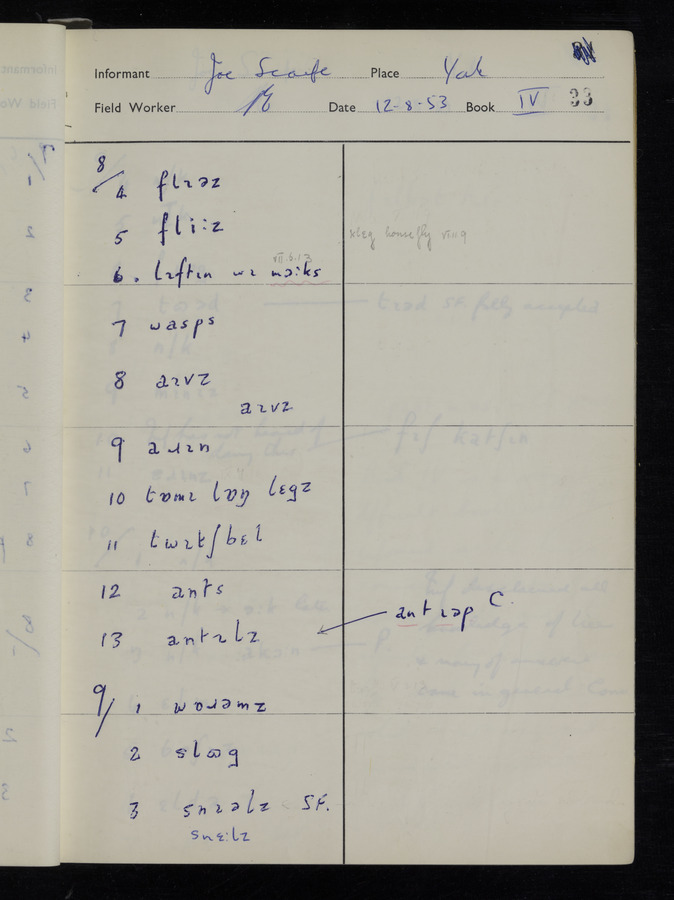 Informant Joe Scaife Place York
Field Worker Date 12-8-53 Book IV 33
8/4 flɪəz
5 fli:z
VII.5.13
6. lɪftɪn wɪ
housefly VIII 9
7 wasps
8 aɪvz
aɪvz
9 aɹɪn
10 tɒmɪ lɒŋ lɛgz
11 twɪtʃbɛl
12 ants
13 antɪlz
antɪəp C.
9/1 wɒɹəmz
2 slɒg
3 snɪəlz SF.
snɛ:lz